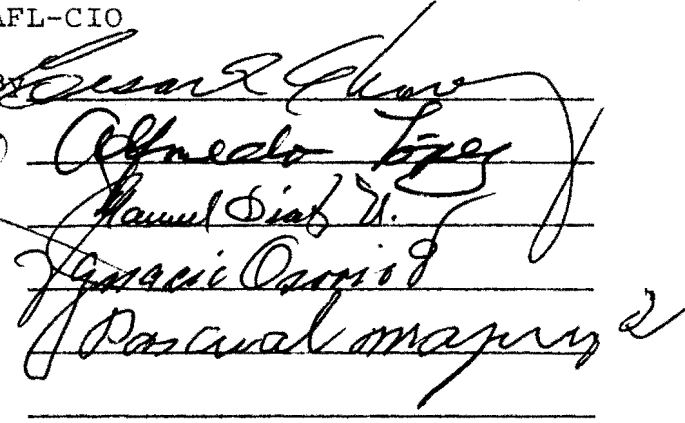 AFL-CIO
BY Cesar E Chavez
Alfredo López
Manuel Diaz U.
Ignacio Osorio
Pascual